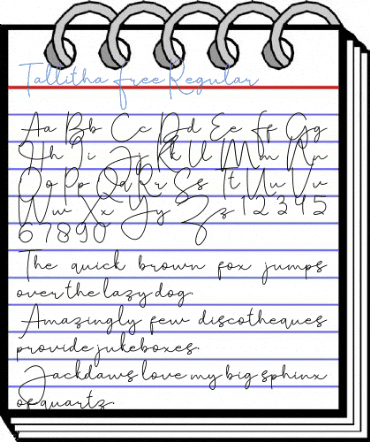 Tallitha Free Regular
Aa Bb Cc Dd Ee Ff Gg
Hh Ii Jj Kk Ll Mm Nn
Oo Pp Qq Rr Ss Tt Uu Vv
Ww Xx Yy Zz 1 2 3 4 5
6 7 8 9 0
The quick brown fox jumps
over the lazy dog
Amazingly few discotheques
provide jukeboxes
Jackdaws love my big sphinx
of quartz